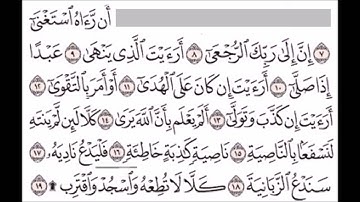 أَن رَّءَاهُ ٱسْتَغْنَىٰٓ
٧ إِنَّ إِلَىٰ رَبِّكَ ٱلرُّجْعَىٰٓ ٨ أَرَءَيْتَ ٱلَّذِى يَنْهَىٰ ٩ عَبْدًا
إِذَا صَلَّىٰٓ ١٠ أَرَءَيْتَ إِن كَانَ عَلَى ٱلْهُدَىٰٓ ١١ أَوْ أَمَرَ بِٱلتَّقْوَىٰٓ ١٢
أَرَءَيْتَ إِن كَذَّبَ وَتَوَلَّىٰٓ ١٣ أَلَمْ يَعْلَم بِأَنَّ ٱللَّهَ يَرَىٰ ١٤ كَلَّا لَئِن لَّمْ يَنتَهِ
لَنَسْفَعًۢا بِٱلنَّاصِيَةِ ١٥ نَاصِيَةٍ كَٰذِبَةٍ خَاطِئَةٍ ١٦ فَلْيَدْعُ نَادِيَهُۥ ١٧
سَنَدْعُ ٱلزَّبَانِيَةَ ١٨ كَلَّا لَا تُطِعْهُ وَٱسْجُدْ وَٱقْتَرِب ۩ ١٩